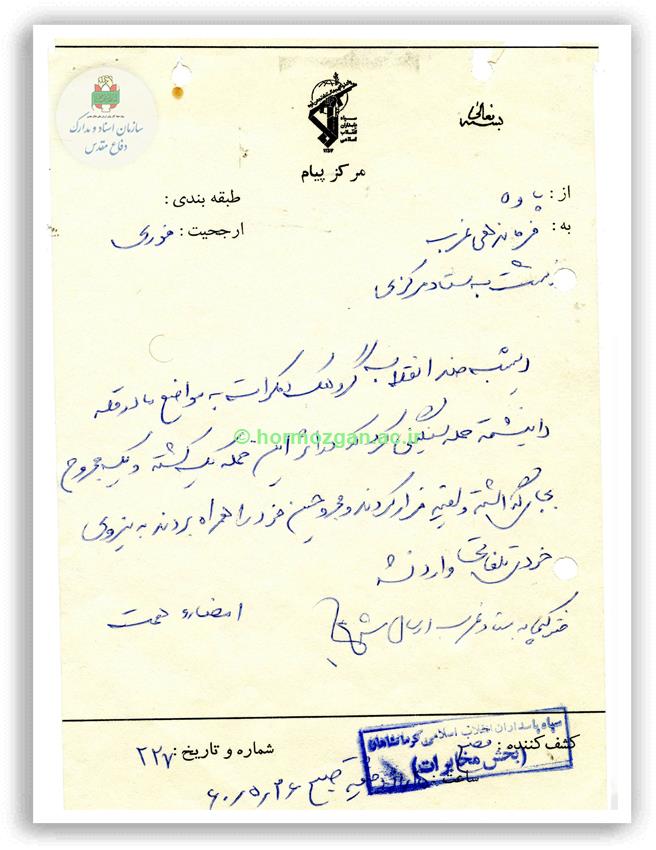 بسمه تعالی
سپاه
پاسداران
انقلاب
اسلامی
مرکز پیام
سازمان اسناد و مدارک
دفاع مقدس
از : پاوه
طبقه بندی :
به : فرماندهی غرب
ارجحیت : فوری
به ستاد مرکزی
دیشب ضد انقلاب گروهک دمکرات به مواضع ما در قله
حمله سنگینی کرد که در اثر این حمله یک کشته و یک مجروح
بجای گذاشته و بقیه فرار کردند و مجروحین خود را همراه بردند به نیروی
خودی تلفاتی وارد نشد
امضاء همت
به ستاد غرب ارسال
© hormozgan.ac.ir
سپاه پاسداران انقلاب اسلامی کرمانشاهان
(بخش مخابرات)
کشف کننده :
شماره و تاریخ : ۲۲۷
ساعت
صبح ۶۰/۵/۲۶